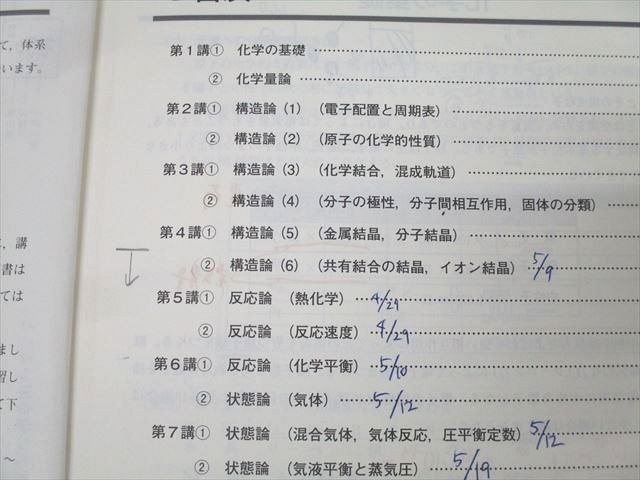 て，体系
います。
講
書は
ては
まし
習し
て下
～
第1講① 化学の基礎
② 化学量論
第2講① 構造論（1）（電子配置と周期表）
② 構造論（2）（原子の化学的性質）
第3講① 構造論（3）（化学結合，混成軌道）
② 構造論（4）（分子の極性，分子間相互作用，固体の分類）
第4講① 構造論（5）（金属結晶，分子結晶）
② 構造論（6）（共有結合の結晶，イオン結晶） 5/9
第5講① 反応論（熱化学） 4/29
② 反応論（反応速度） 4/29
第6講① 反応論（化学平衡） 5/10
② 状態論（気体） 5/12
第7講① 状態論（混合気体，気体反応，圧平衡定数） 5/12
② 状態論（気液平衡と蒸気圧） 5/19